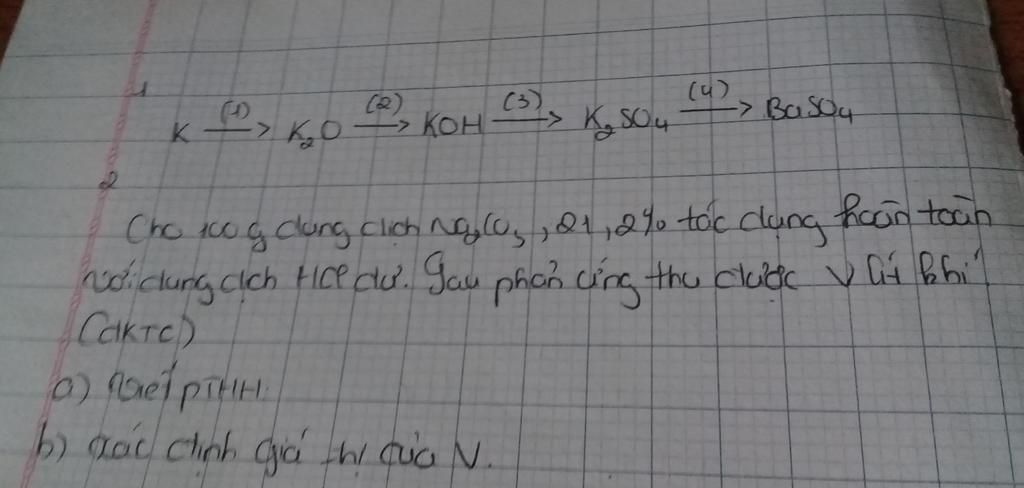 1
K (1)→ K₂O (2)→ KOH (3)→ K₂SO₄ (4)→ BaSO₄
2
Cho 100 g dung dịch Na₂CO₃, 21,2% tác dụng hoàn toàn
với dung dịch HCl dư. Sau phản ứng thu được V lít khí
(đKTC)
a) Viết PTHH.
b) xác định giá trị của V.